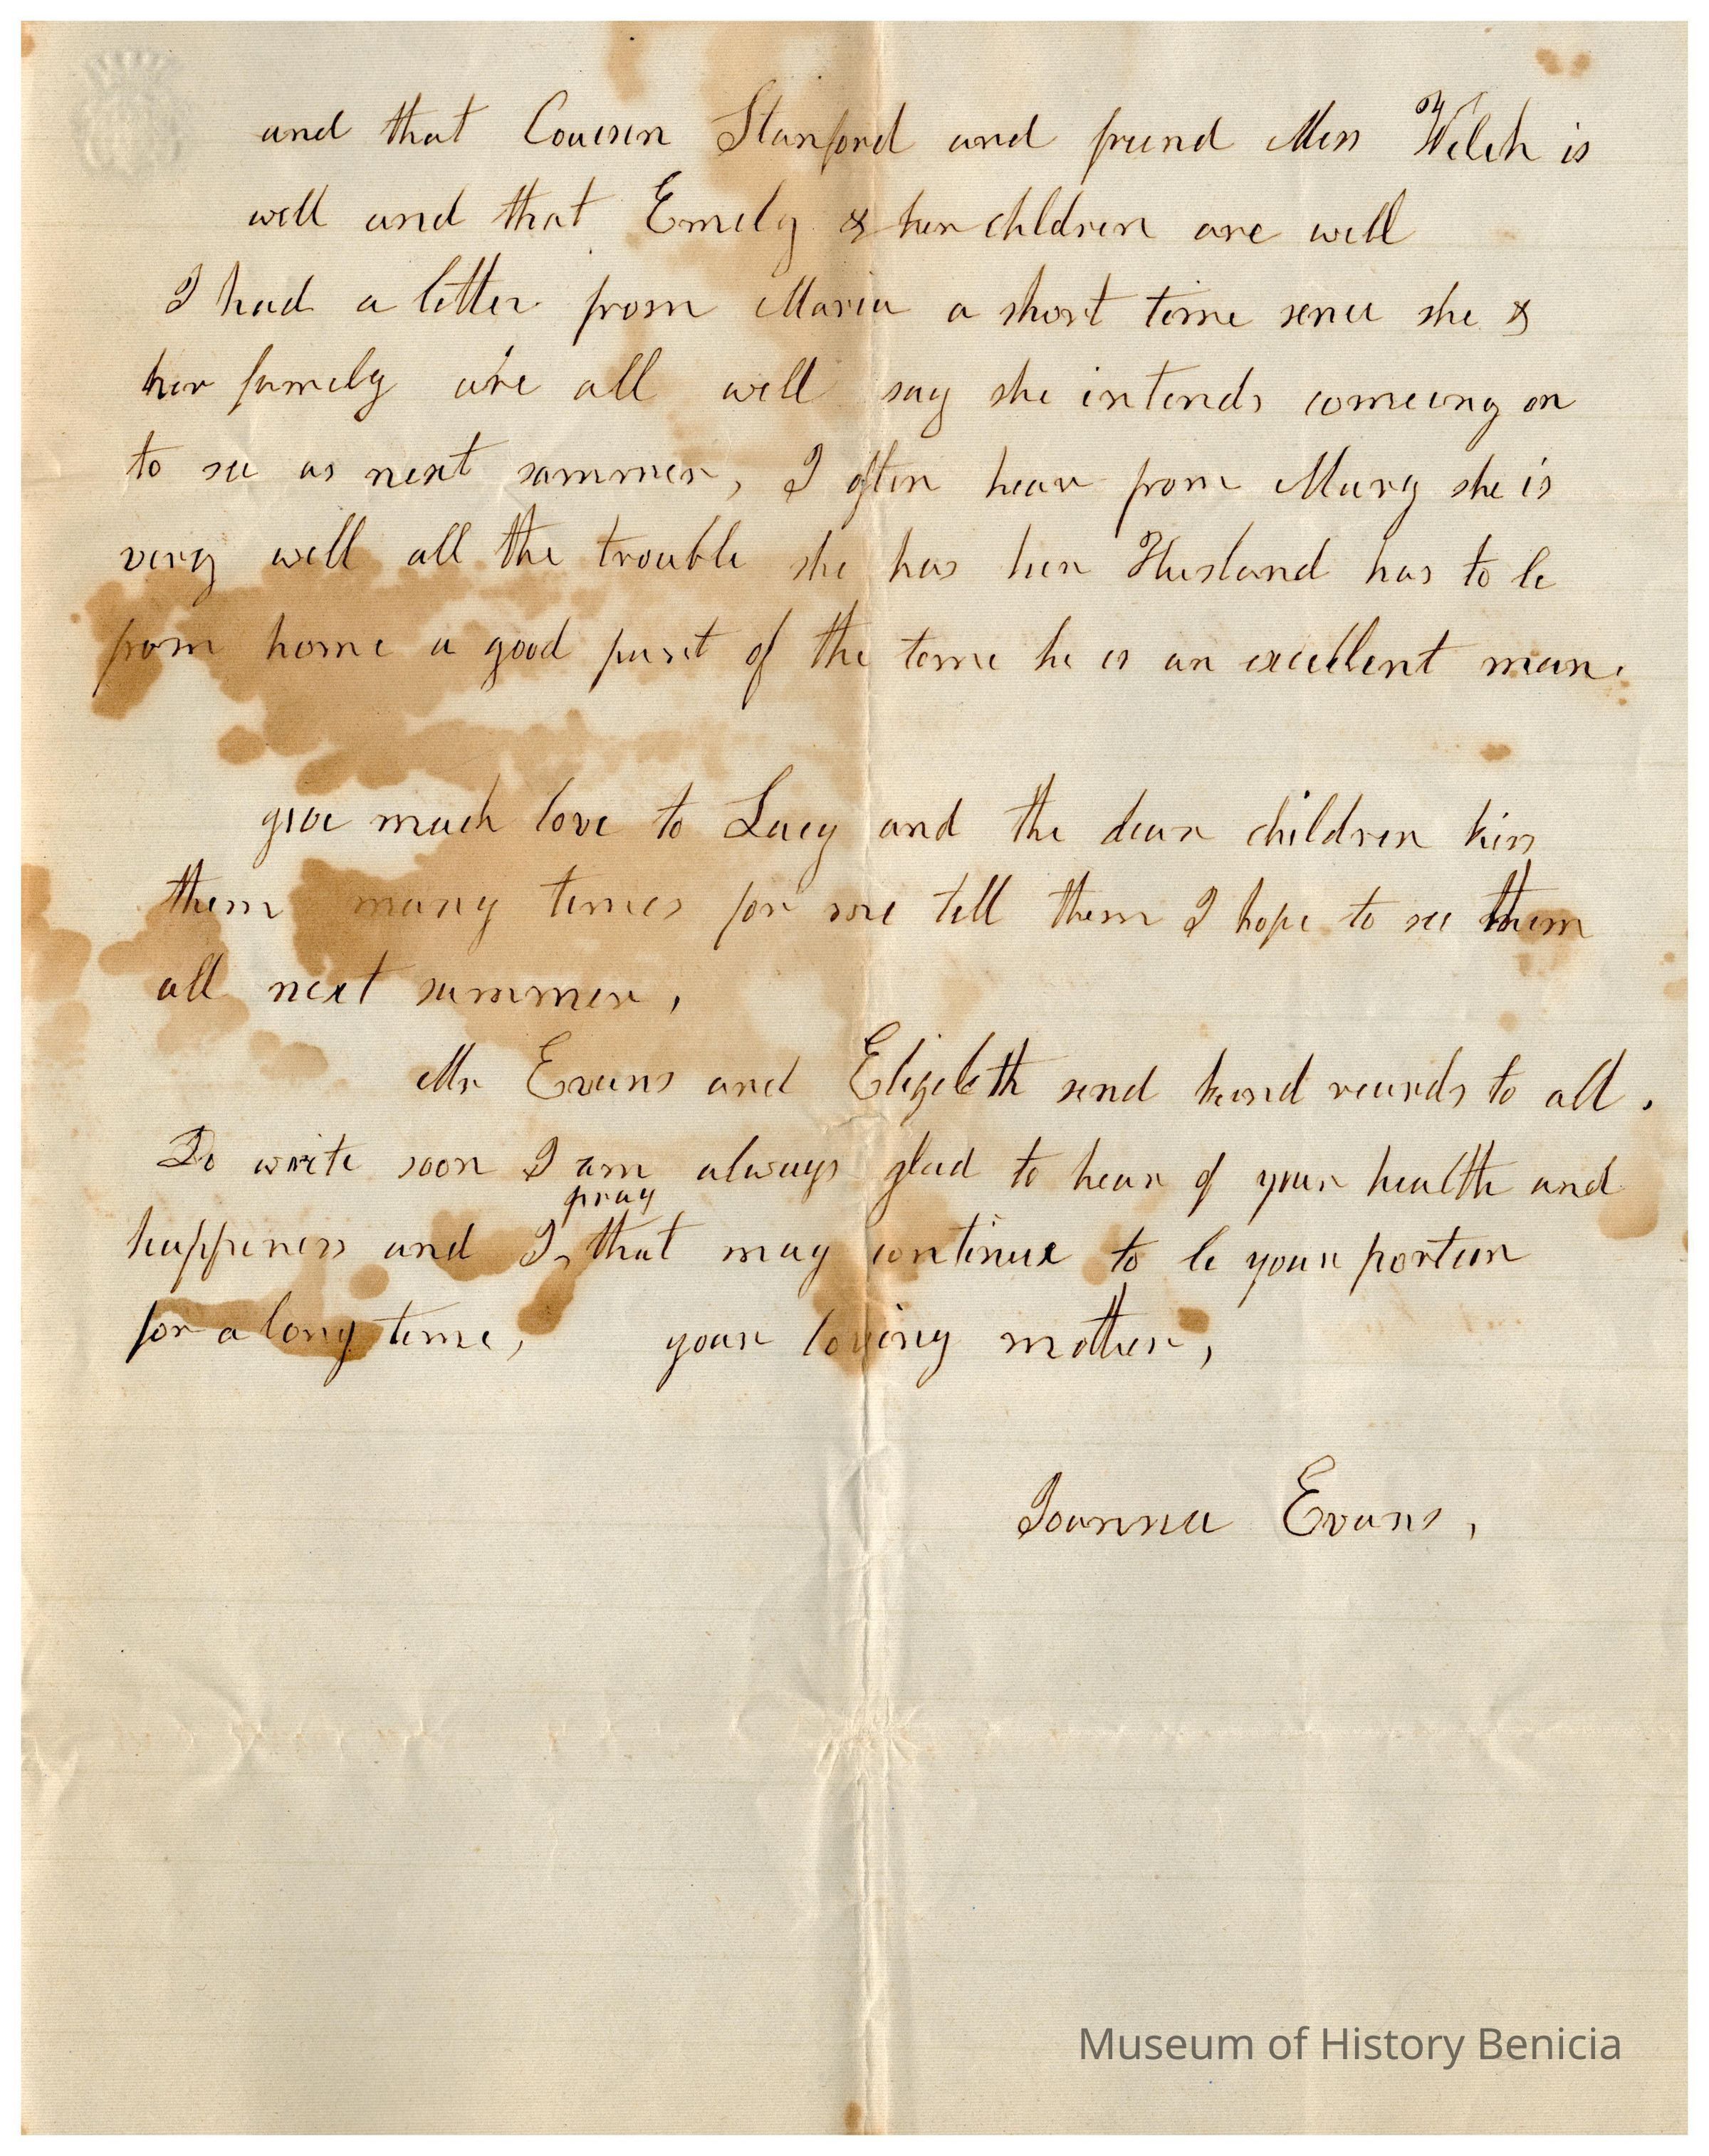 and that Couisin Stanford and friend Miss Welch is
well and that Emely & her children are well
I had a letter from Maria a short time sence she &
her famely are all well say she intends comeing on
to see us next summer, I often hear from Mary she is
very well all the trouble she has her Husband has to be
from home a good part of the time he is an excellent man.
give much love to Lucy and the dear children kiss
them many times for me tell them I hope to see them
all next summer,
Mr Evans and Elizebeth send kind reards to all.
Do write soon I am always glad to hear of your health and
pray
happiness and I, that may continue to be your portion
for a long time, your loving mother,
Joanna Evans,
Museum of History Benicia